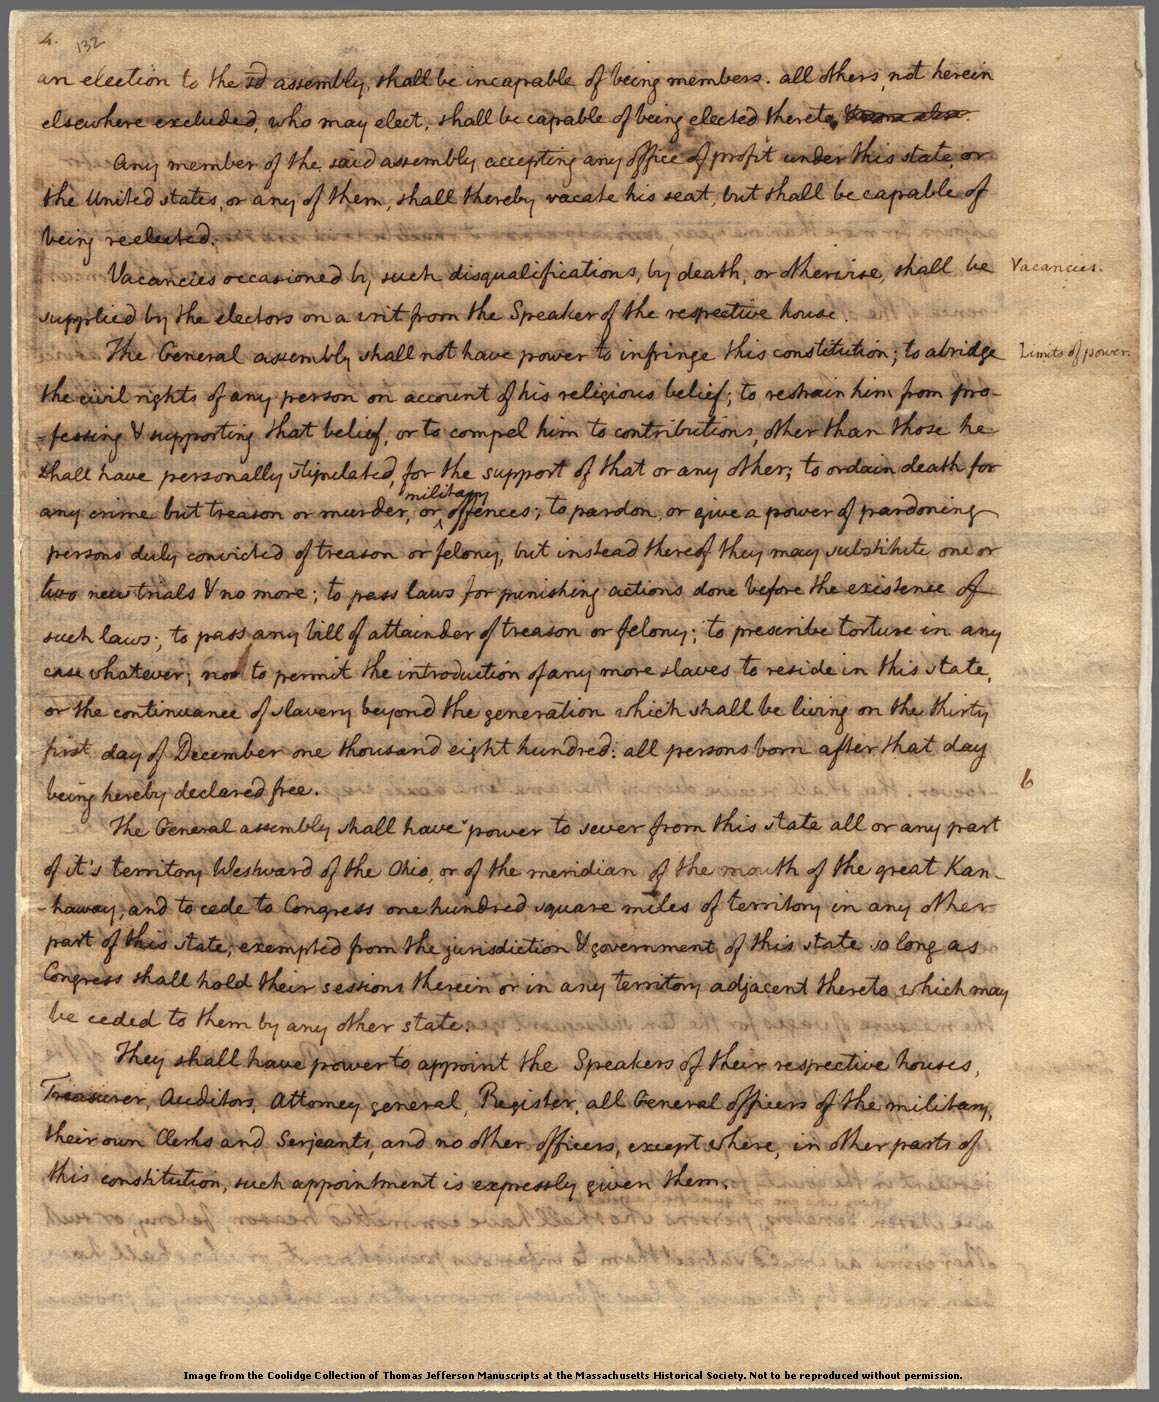 4. 132
an election to the sd assembly, shall be incapable of being members. all others, not herein
elsewhere excluded, who may elect, shall be capable of being elected thereto.
Any member of the said assembly accepting any office of profit under this state, or
the United states, or any of them, shall thereby vacate his seat, but shall be capable of
being reelected.
Vacancies occasioned by such disqualifications, by death, or otherwise, shall be Vacancies.
supplied by the electors on a writ from the Speaker of the respective house.
The General assembly shall not have power to infringe this constitution; to abridge Limits of power.
the civil rights of any person on account of his religious belief; to restrain him from pro-
-fessing & supporting that belief, or to compel him to contributions, other than those he
shall have personally stipulated, for the support of that or any other; to ordain death for
military
any crime but treason or murder, or ^ offences; to pardon, or give a power of pardoning
persons duly convicted of treason or felony, but instead thereof they may substitute one or
two new trials & no more; to pass laws for punishing actions done before the existence of
such laws; to pass any bill of attainder of treason or felony; to prescribe torture in any
case whatever; nor to permit the introduction of any more slaves to reside in this state,
or the continuance of slavery beyond the generation which shall be living on the thirty
first day of December one thousand eight hundred: all persons born after that day
being hereby declared free.
The General assembly shall have power to sever from this state all or any part
of it's territory Westward of the Ohio, or of the meridian of the mouth of the great Kan-
-haway, and to cede to Congress one hundred square miles of territory in any other
part of this state, exempted from the jurisdiction & government of this state so long as
Congress shall hold their sessions therein or in any territory adjacent thereto, which may
be ceded to them by any other state.
They shall have power to appoint the Speakers of their respective houses,
Treasurer, Auditors, Attorney general, Register, all General officers of the military,
their own Clerks and Serjeants, and no other officers, except where, in other parts of
this constitution, such appointment is expressly given them.
Image from the Coolidge Collection of Thomas Jefferson Manuscripts at the Massachusetts Historical Society. Not to be reproduced without permission.